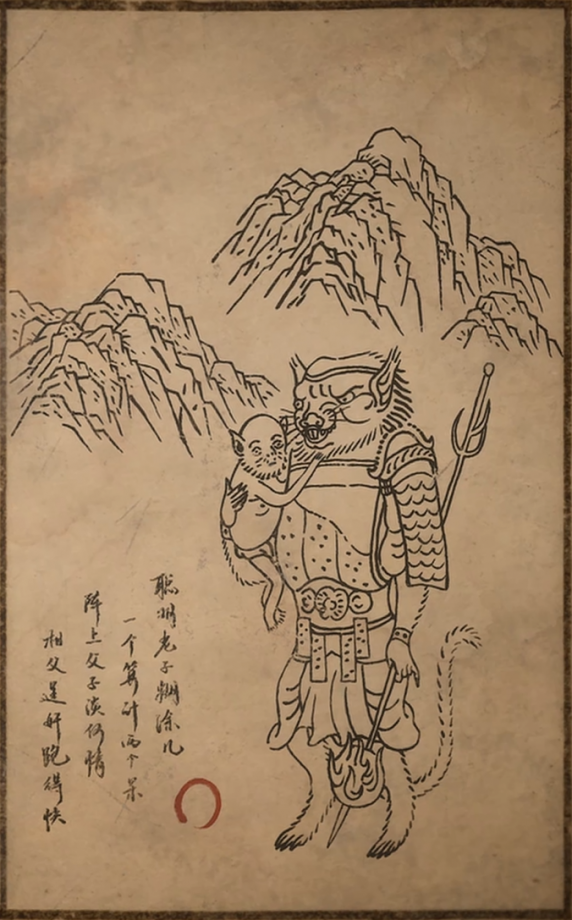 聪明老子糊涂儿
一个算计两个呆
阵上父子谈何情
相父逞奸跑得快